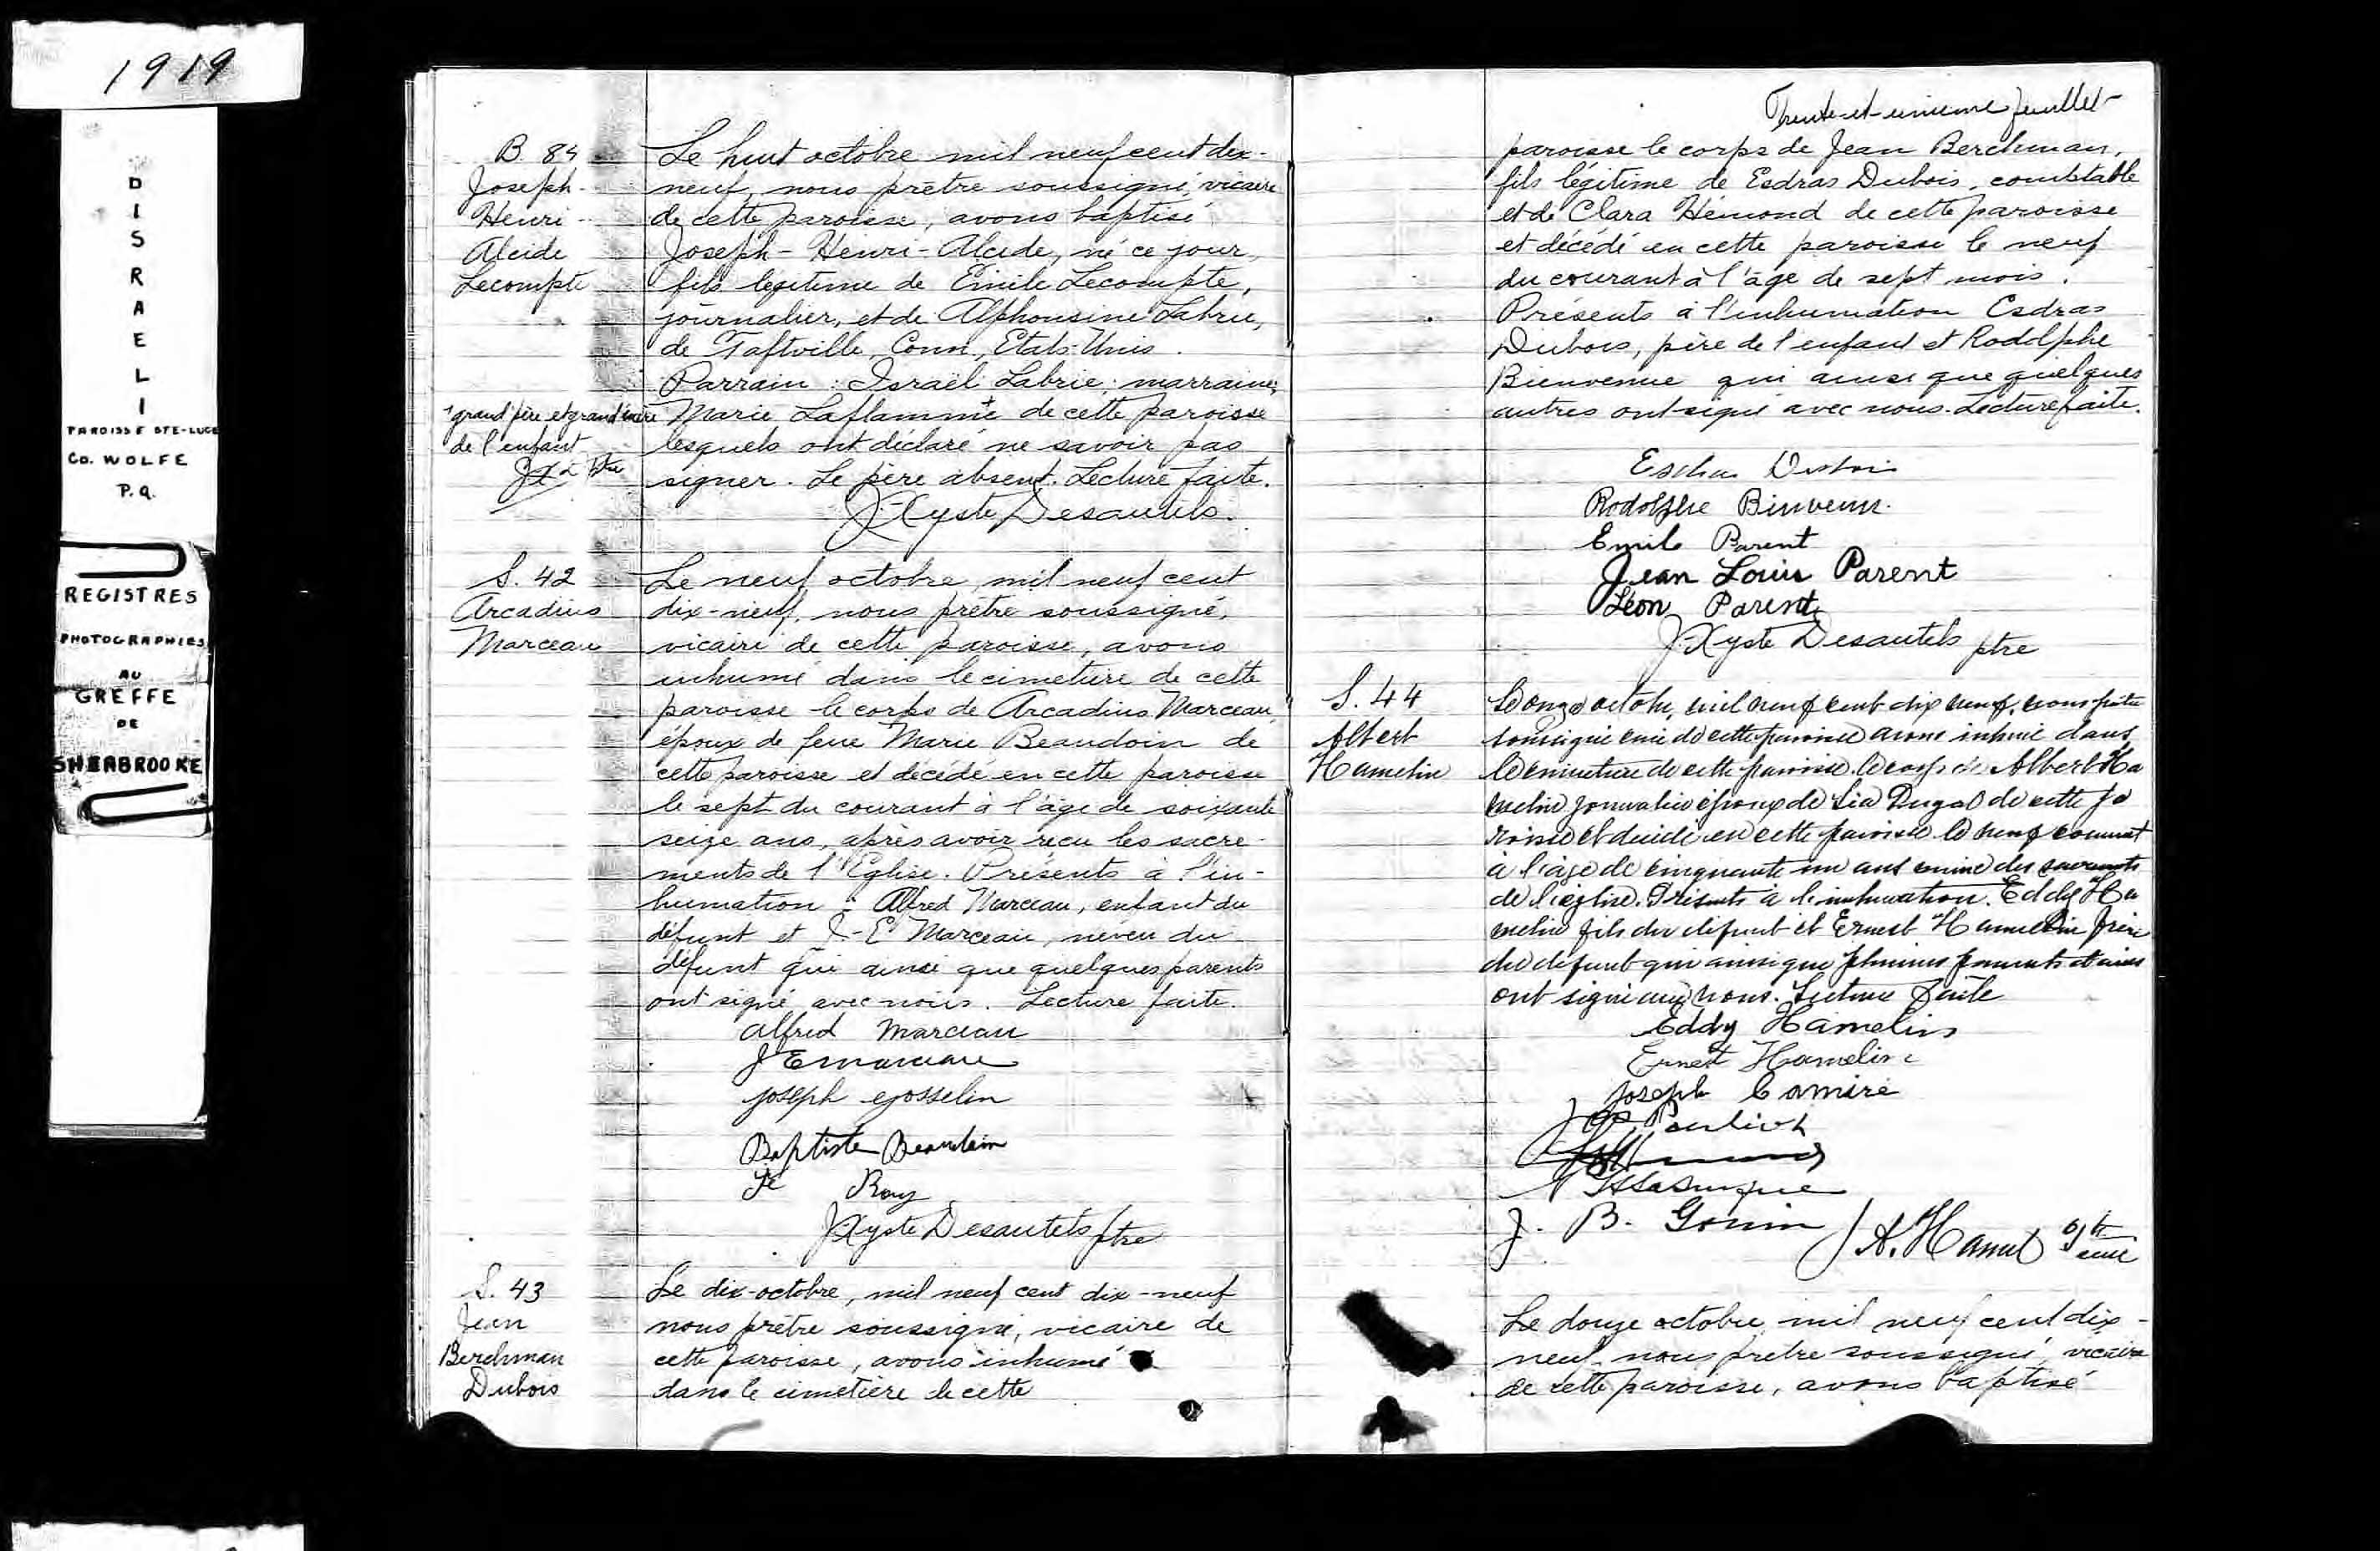 1919
DISRAELI
PAROISSE STE-LUCE
Co. WOLFE
P.Q.
REGISTRES
PHOTOGRAPHIES
AU
GREFFE
DE
SHERBROOKE
B. 84
Joseph-
Henri-
Alcide
Lecompte
Le huit octobre mil neuf cent dix-
neuf, nous prêtre soussigné, vicaire
de cette paroisse, avons baptisé
Joseph-Henri-Alcide, né ce jour,
fils légitime de Emile Lecompte,
journalier, et de Alphonsine Labrie,
de Taftville, Conn, Etats-Unis.
Parrain: Israël Labrie; marraine,
Marie Laflamme + de cette paroisse
lesquels ont déclaré ne savoir pas
signer. Le père absent. Lecture faite.
+ grand père et grand'mère
de l'enfant
J.-Xyste Desautels.
S. 42
Arcadius
Marceau
Le neuf octobre, mil neuf cent
dix-neuf, nous prêtre soussigné,
vicaire de cette paroisse, avons
inhumé dans le cimetière de cette
paroisse le corps de Arcadius Marceau,
époux de feue Marie Beaudoin de
cette paroisse et décédé en cette paroisse
le sept du courant à l'âge de soixante
seize ans, après avoir reçu les sacre-
ments de l'Eglise. Présents à l'in-
humation: Alfred Marceau, enfant du
défunt et J.-E. Marceau, neveu du
défunt qui ainsi que quelques parents
ont signé avec nous. Lecture faite.
Alfred Marceau
J E Marceau
Joseph Gosselin
Baptiste Beaudoin
Roy
J.Xyste Desautels ptre
S. 43
Jean
Berchman
Dubois
Le dix-octobre, mil neuf cent dix-neuf
nous prêtre soussigné, vicaire de
cette paroisse, avons inhumé
dans le cimetière de cette
Trente-et-unième feuillet
paroisse le corps de Jean Berchman,
fils légitime de Esdras Dubois, comptable
et de Clara Hémond de cette paroisse
et décédé en cette paroisse le neuf
du courant à l'âge de sept mois.
Présents à l'inhumation Esdras
Dubois, père de l'enfant et Rodolphe
Bienvenue qui ainsi que quelques
autres ont signé avec nous. Lecture faite.
Esdras Dubois
Rodolphe Binvenu.
Emile Parent
Jean Louis Parent
Léon Parent
J.Xyste Desautels ptre
S. 44
Albert
Hamelin
Le onze octobre, mil neuf cent dix neuf, nous prêtre
soussigné curé de cette paroisse avons inhumé dans
le cimetière de cette paroisse le corps de Albert Ha
melin journalier époux de Lia Dugal de cette pa
roisse et décédé en cette paroisse le neuf courant
à l'âge de cinquante un ans muni des sacrements
de l'église. Présents à l'inhumation. Eddy Ha
melin fils du défunt et Ernest Hamelin frère
du défunt qui ainsi que plusieurs parents et amis
ont signé avec nous. Lecture faite
Eddy Hamelin
Ernest Hamelin
Joseph Camiré
J. B. Gouin
J A. Hamel Ptre curé
Le douze octobre, mil neuf cent dix-
neuf, nous prêtre soussigné, vicaire
de cette paroisse, avons baptisé